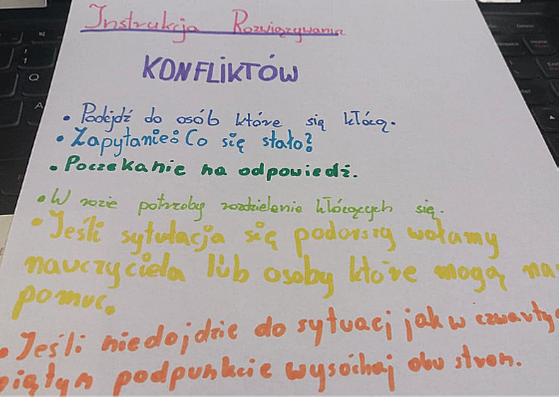 Instrukcja Rozwiązywania
KONFLIKTÓW
• Podejdź do osób które się kłócą.
• Zapytanie: Co się stało?
• Poczekanie na odpowiedź.
• W razie potrzeby rozdzielenie kłócących się.
• Jeśli sytułacja się podorszy wołamy
nauczyciela lub osoby które mogą na
pomuc.
• Jeśli niedojdzie do sytuacj jak w czwarty
piątym podpunkcie wysóchaj obu stron.